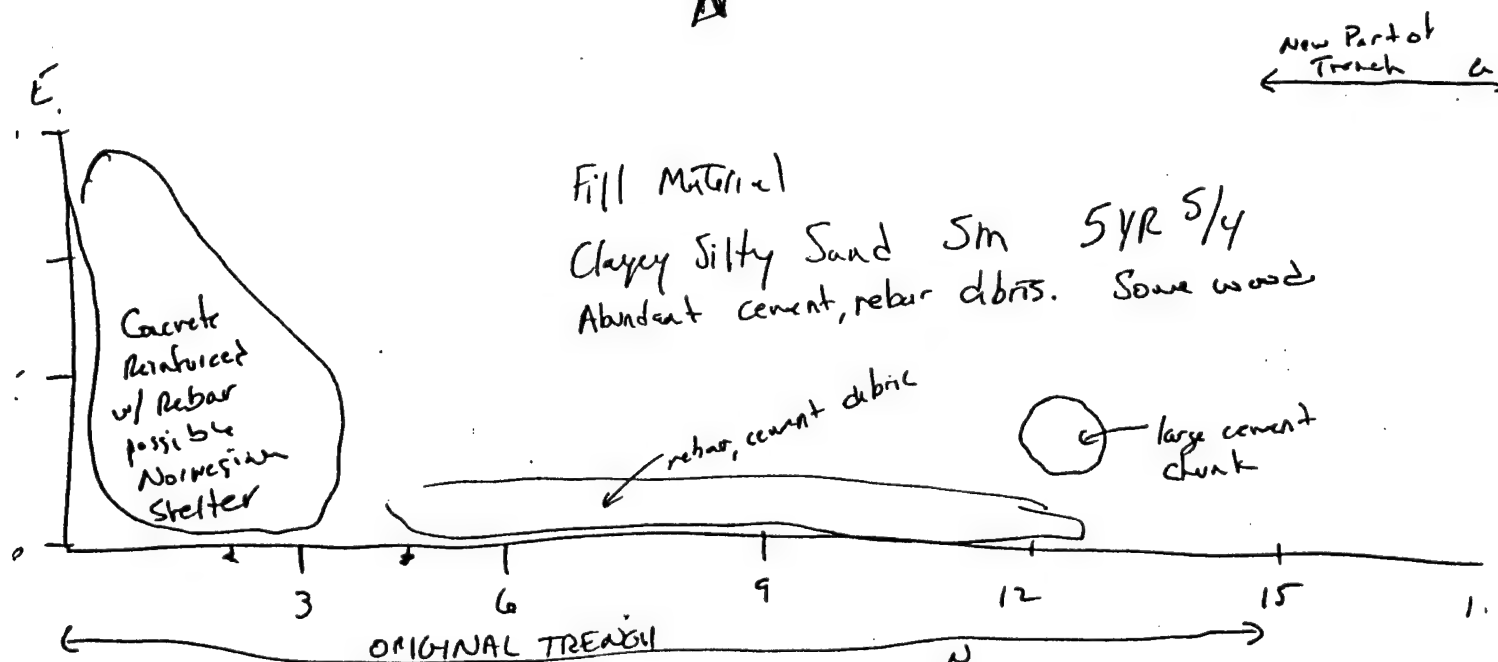 New Part of
Trench
E.
Fill Material
Clayey Silty Sand Sm 5YR 5/4
Abundant cement, rebar debris. Some wood
Concrete
Reinforced
w/ Rebar
possible
Norwegian
Shelter
rebar, cement debris
large cement
chunk
3 6 9 12 15 1.
ORIGINAL TRENCH
N